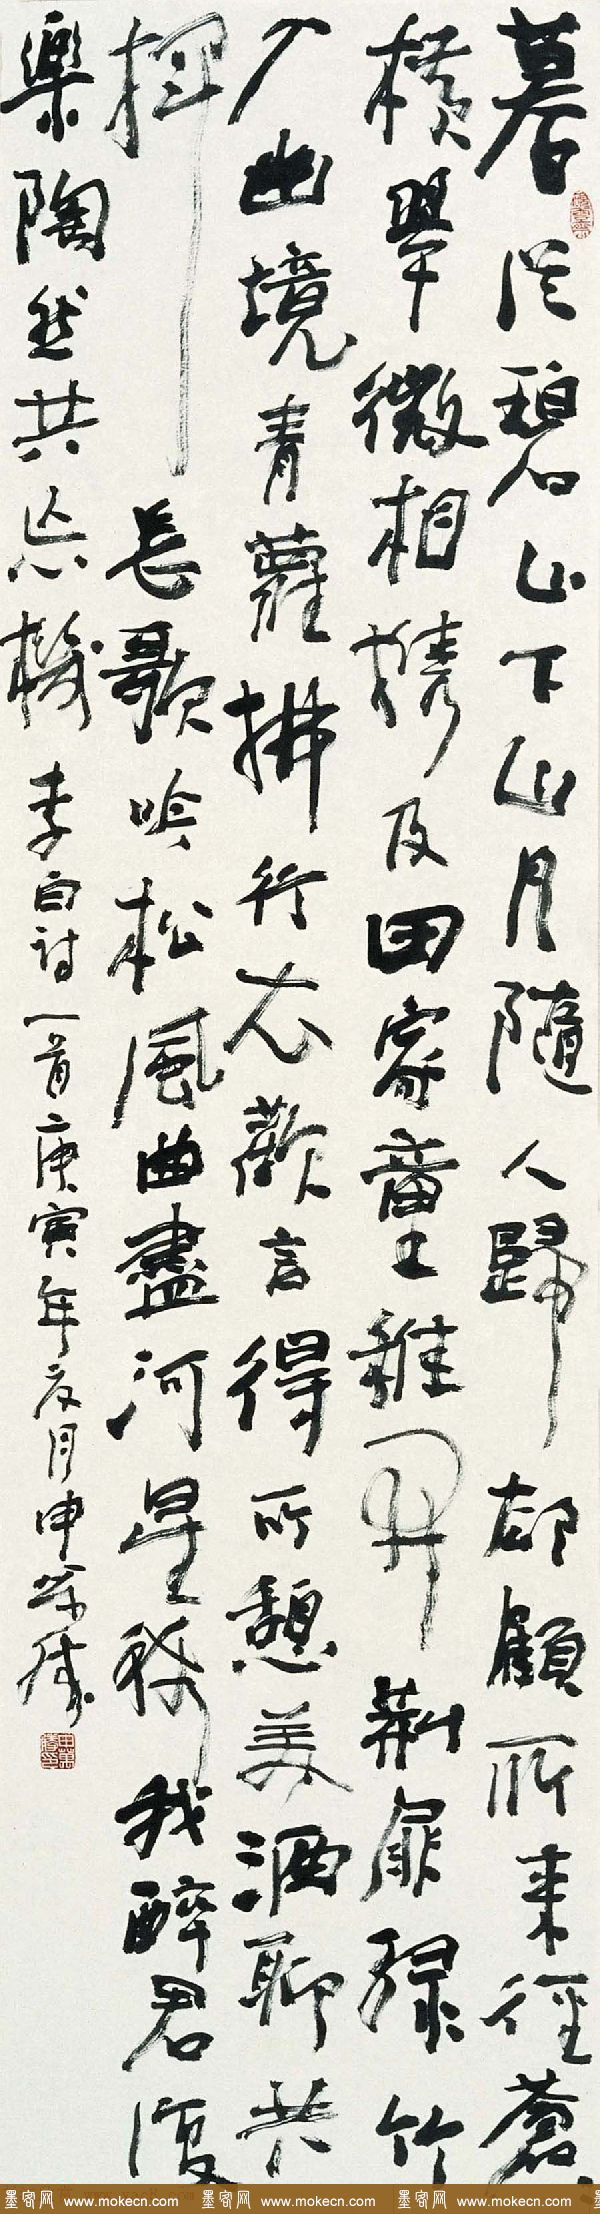 暮從碧山下山月隨人歸却顧所來徑蒼〻
橫翠微相攜及田家童稚開荊扉綠竹
入幽境青蘿拂行衣歡言得所憩美酒聊共
揮長歌吟松風曲盡河星稀我醉君復
樂陶然共忘機 李白詩一首庚寅年夏月申萬勝
墨客网 www.mokecn.com 墨客网 www.mokecn.com 墨客网 www.mokecn.com